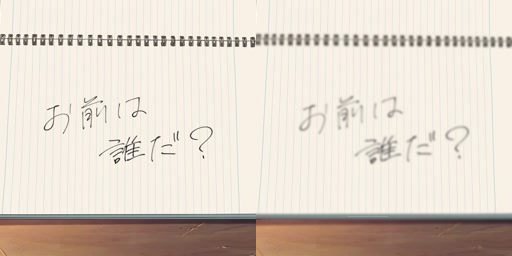 お前は
誰だ?
お前は
誰だ?